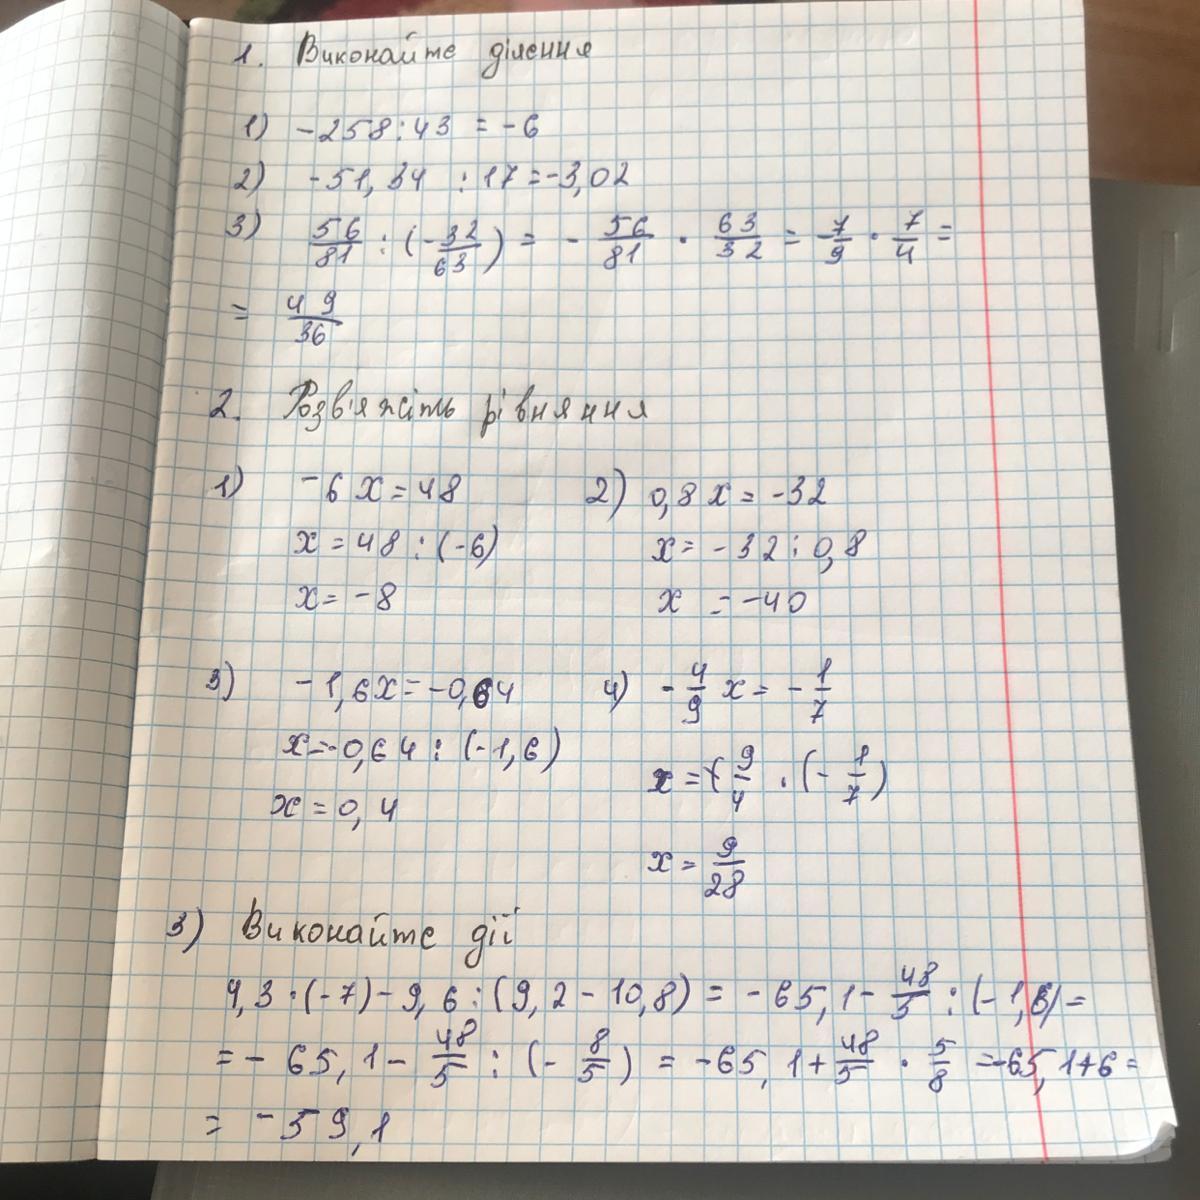 1. Виконайте ділення
1) -258:43 = -6
2) -51,34 :17=-3,02
3) 56/81 : (-32/63) = - 56/81 · 63/32 = -7/9 · 7/4 =
= 49/36
2. Розв'яжіть рівняння
1) -6x=48
x=48:(-6)
x=-8
2) 0,8x=-32
x=-32:0,8
x=-40
3) -1,6x=-0,64
x=-0,64:(-1,6)
x=0,4
4) -4/9 x=-1/7
x=(-9/4 · (-1/7)
x=9/28
3) Виконайте дії
9,3·(-7)-9,6:(9,2-10,8) = -65,1-48/5:(-1,6)=
=-65,1-48/5:(-8/5) = -65,1+48/5 · 5/8 =-65,1+6=
= -59,1